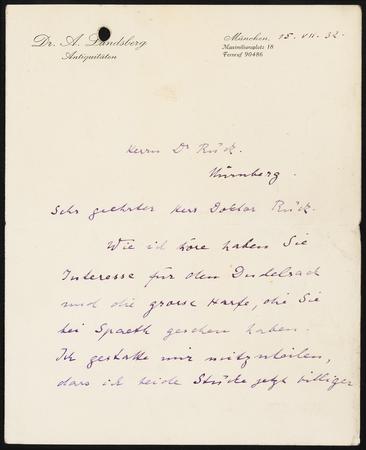 Dr. A. Landsberg
Antiquitäten
München, 15. VII. 32.
Maximiliansplatz 18
Fernruf 90486
Herrn Dr Rück.
Nürnberg.
Sehr geehrter Herr Doktor Rück.
Wie ich höre haben Sie
Interesse für den Dudelsack
und die grosse Harfe, die Sie
bei Spaeth gesehen haben.
Ich gestatte mir mitzuteilen,
dass ich beide Stücke jetzt billiger